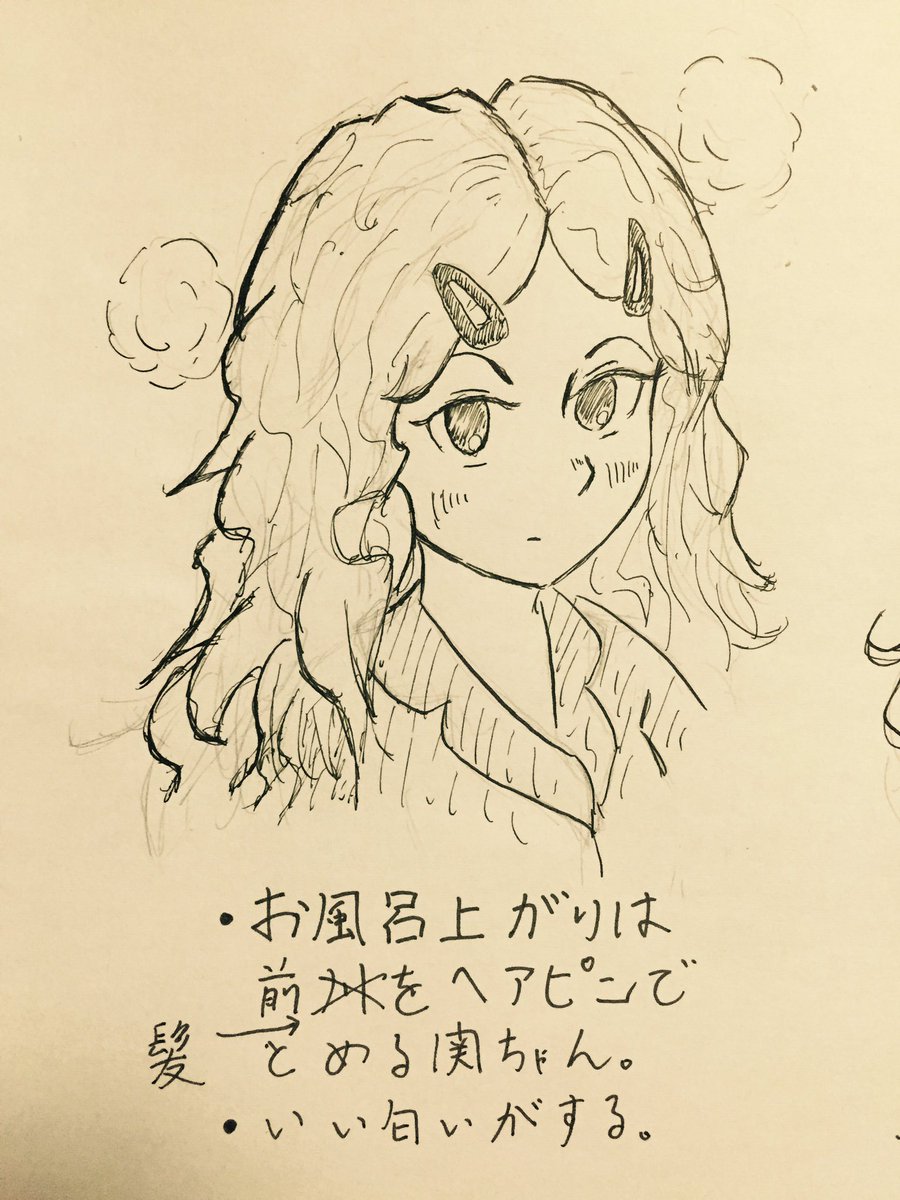 ・お風呂上がりは
前髪をヘアピンで
とめる関ちゃん。
・いい匂いがする。